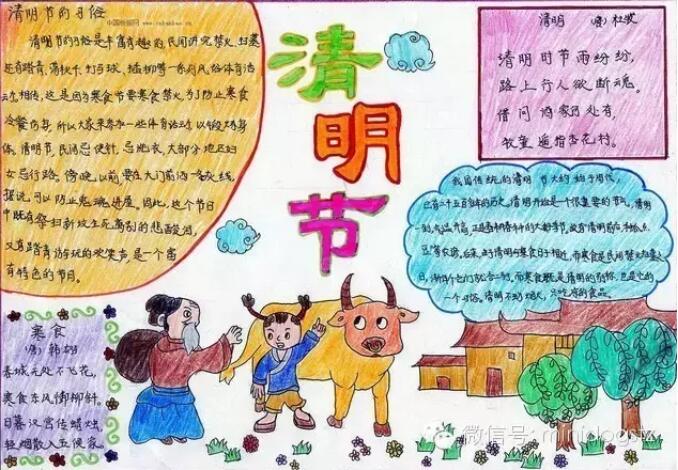 清明节的习俗
清明节的习俗是丰富有趣的,民间讲究禁火、扫墓
还有踏青、荡秋千、打马球、插柳等一系列风俗体育活
动。相传,这是因为寒食节要寒食禁火,为了防止寒食
冷餐伤身,所以大家来参加一些体育活动,以锻炼身
体。清明节,民间忌使针,忌洗衣,大部分地区妇
女忌行路。傍晚以前,要在大门前洒一条灰线,
据说,可以防止鬼魂进屋。因此,这个节日
中既有祭扫新坟生死离别的悲酸泪,
又有踏青游玩的欢笑声,是一个富
有特色的节日。
清明节
清明 (唐) 杜牧
清明时节雨纷纷,
路上行人欲断魂。
借问酒家何处有,
牧童遥指杏花村。
我国传统的清明节大约始于周代,
已有二千五百多年的历史。清明开始是一个很重要的节气,清明
一到,气温升高,正是春耕春种的大好时节,故有清明前后,种瓜点
豆
日,渐渐
一个习俗,清明不动烟火,只吃凉的食品。
寒食
(唐) 韩翃
春城无处不飞花,
寒食东风御柳斜。
日暮汉宫传蜡烛,
轻烟散入五侯家。
微信号: